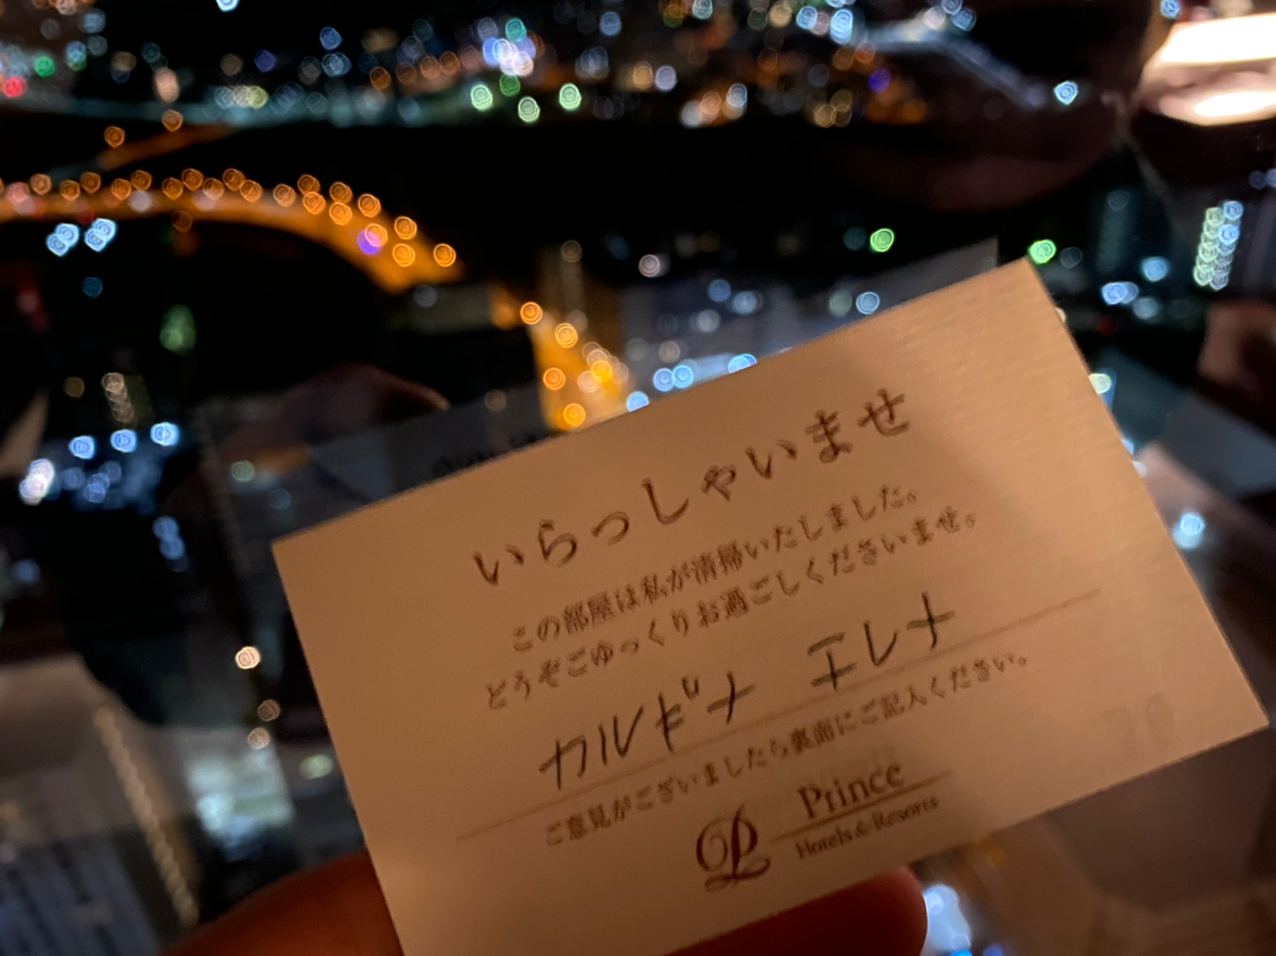 いらっしゃいませ
この部屋は私が清掃いたしました。
どうぞごゆっくりお過ごしくださいませ。
カルギナ エレナ
ご意見がございましたら裏面にご記入ください。
Prince
Hotels & Resorts